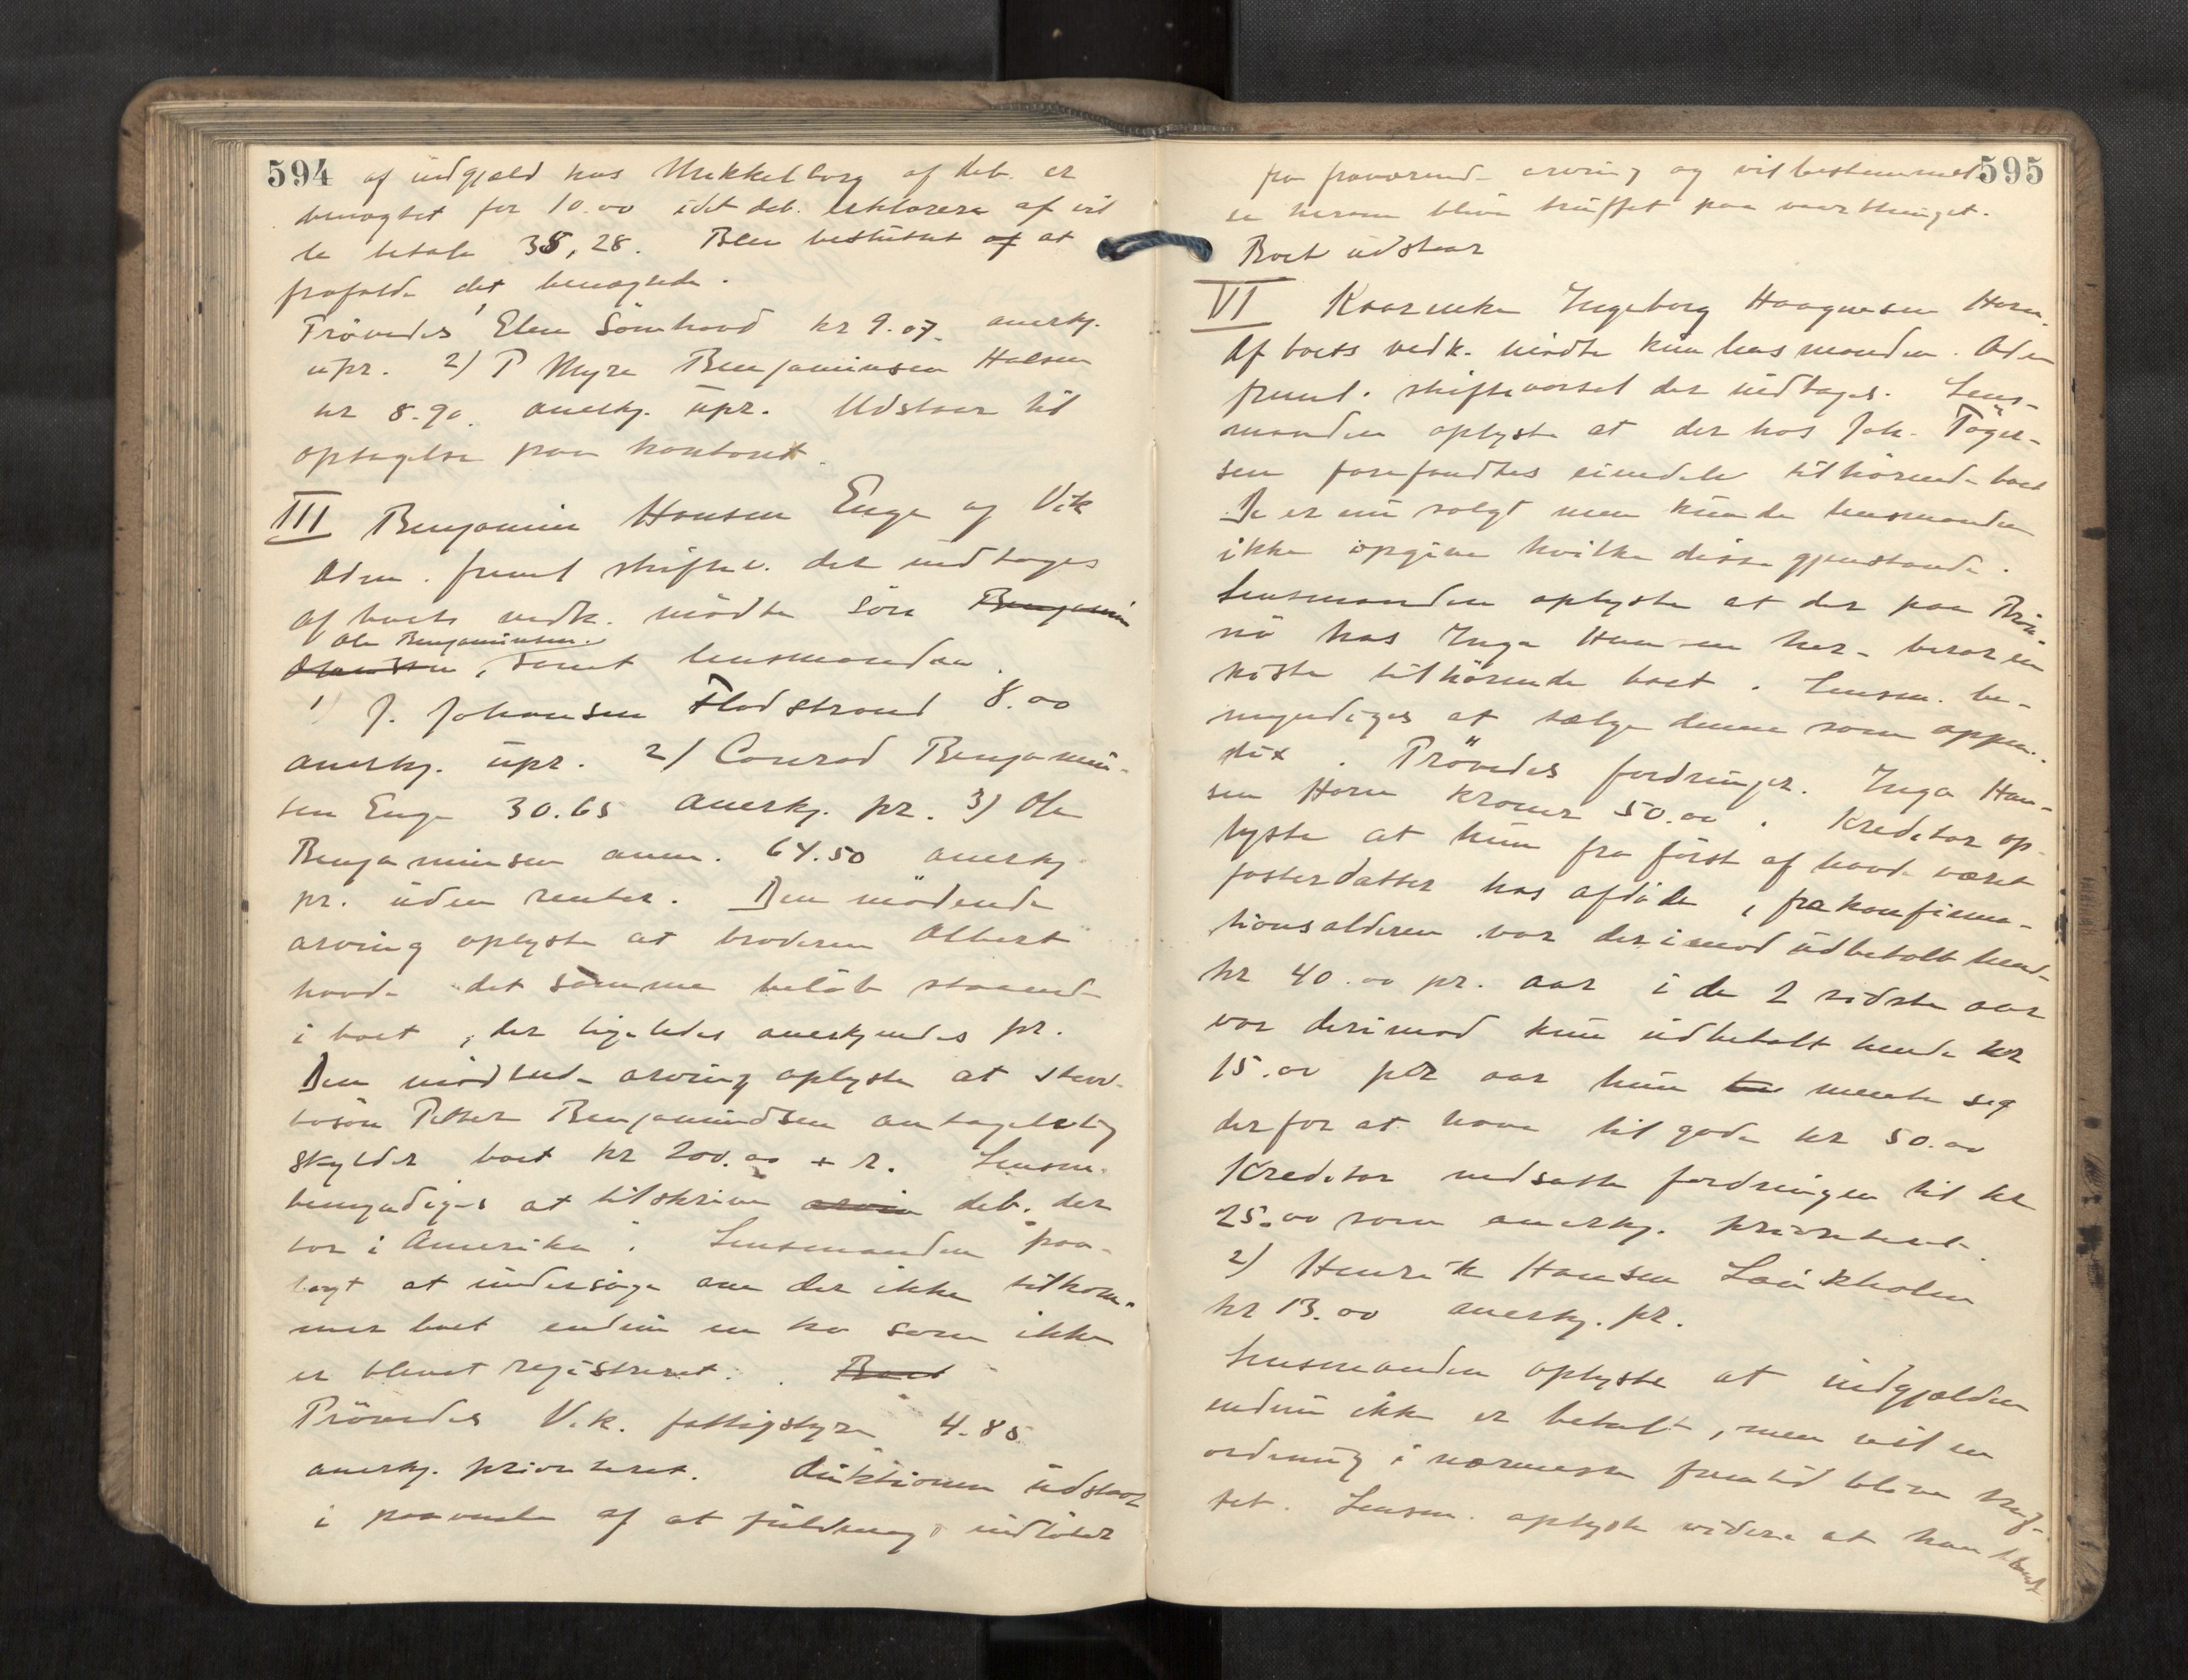 594
af indgjæld hos Mekkelborg af deb. er
benægtet for 10.00 idet deb. erklærer at vil
le betale 38,28. Blev besluttet af at
frafalde det benægtede.
Prövedes Elen Sömhovd kr 9.07. anerkj.
upr. 2) P Myre Benjaminsen Halsen
kr 8.90. anerkj. upr. Udstaar til
optagelse paa kontoret.
III Benjamin Hansen Enge af Vik
Adm. freml skiftev. der indtages
af boets vedk. mödte sön Benjamin
Ole Benjaminsen
, samt lensmanden.
1) J. Johansen Flodstrand 8.00
anerkj. upr. 2) Conrad Benjamin-
sen Enge 30.65 anerkj. pr. 3) Ole
Benjaminsen anm. 64.50 anerkj
pr. uden renter. Den mödende
arving oplyste at broderen Albert
havde det samme belöb staaende
i boet, der ligeledes anerkjendes pr.
Den mödende arving oplyste at sterv-
bosön Petter Benjamindsen antagelelig
skylder boet kr 200.00 + r. Lensm.
bemyndiges at tilskrive arvin deb. der
bor i Amerika. Lensmanden paa-
lagt at undersöge om der ikke tilkom-
mer boet endnu en ko som ikke
er blevet registreret. Boet
Prövedes V.k. fattigstyre 4.85
anerkj. prioriteret. Auktionen udstaar
i paavente af at fuldmagt indlöber
595
fra fraværende arving og vil bestemmel
se herom blive truffet paa vaarthinget.
Boet udstaar
VI Kaarinke Ingeborg Haagensen Horn.
Af boets vedk. mödte kun lensmanden. Adm
freml. skiftevarsel der indtages. Lens-
manden oplyste at der hos Joh. Töger-
sen forefandtes eiendele tilhörende boet
De er nu solgt men kunde lensmanden
ikke opgive hvilke disse gjenstande.
Lensmanden oplyste at der paa Brön-
nö hos Inga Hansen her- beror en
kiste tilhörende boet. Lensm. be-
myndiges at sælge denne som appen-
dix. Prövedes fordringer. Inga Han-
sen Horn kroner 50.00. Kreditor op-
lyste at hun fra först af havde været
fosterdatter hos afdöde, fra konfirma-
tionsalderen var derimod udbetalt hende
kr 40.00 pr. aar i de 2 sidste aar
var derimod kun udbetalt hende kr
15.00 pr aar hun mente seg
derfor at have tilgode kr 50.00
Kreditor nedsatte fordringen til kr
25.00 som anerkj. prioriteret.
2) Henrik Hansen Laukholm
kr 13.00 anerkj. pr.
Lensmanden oplyste at indgjælden
endnu ikke er betalt, men vil en
ordning i nærmeste fremtid blive truf-
fet. Lensm. oplyste videre at han